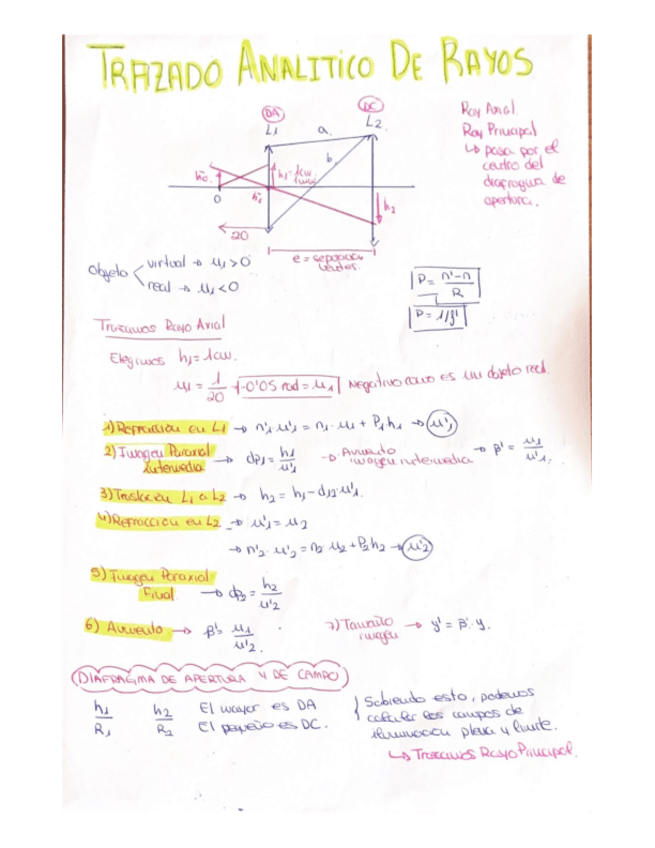 TRAZADO ANALITICO DE RAYOS
DA
DC
L1
L2
a.
b.
Ray Axial
Ray Principal
↳ pasa por el
centro del
diafragma de
apertura.
h1=1cm
h2
O
20
e = separación
lentes.
Objeto
virtual → u1 > 0
real → u1 < 0
P = n'-n / R
P = 1/f'
Trazamos Rayo Axial
Elegimos h1 = 1cm.
u1 = 1/20 = -0'05 rad = u1 Negativo como es un objeto real.
1) Refracción en L1 → n'1·u'1 = n1·u1 + P1h1 → u'1
2) Imagen Paraxial Intermedia → dp1 = h1/u'1 → Aumento imagen intermedia → β' = u1/u'1.
3) Traslación L1 a L2 → h2 = h1 - d12·u'1.
4) Refracción en L2 → u'1 = u2
→ n'2·u'2 = n2·u2 + P2h2 → u'2
5) Imagen Paraxial Final → dp2 = h2/u'2
6) Aumento → β' = u1/u'2. 7) Tamaño imagen → y' = β'·y.
DIAFRAGMA DE APERTURA Y DE CAMPO
h1/R1 h2/R2 El mayor es DA
El pequeño es DC.
Sabiendo esto, podemos
calcular los campos de
iluminación plena y límite.
↳ Trazamos Rayo Principal.